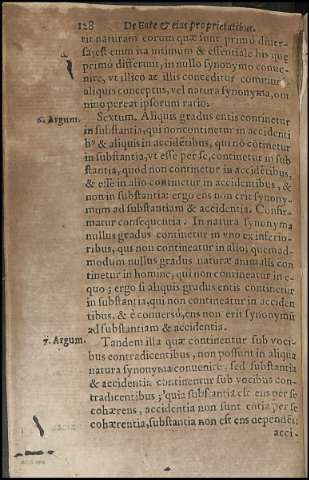 128 De Ente & eius proprietatibus.
rit naturam eorum quæ sunt primo diuer-
sa; est enim ita intimum & essentiale his quę
primo differunt, in nullo synonymo conue-
nire, vt illico ac illis conceditur communis
aliquis conceptus, vel natura synonyma, om
nino pereat ipsorum ratio.
6. Argum. Sextum. Aliquis gradus entis continetur
in substantia, qui non continetur in accidenti
bꝰ & aliquis in accidētibus, qui nō cōtinetur
in substantia, vt esse per se, continetur in sub
stantia, quod non continetur in accidētibus,
& esse in alio continetur in accidentibus, &
non in substantia: ergo ens non erit synony-
mum ad substantiam & accidentia. Confir-
matur consequentia. In natura synonyma
nullus gradus continetur in vno ex inferio-
ribus, qui non contineatur in alio; quemad-
modum nullus gradus naturæ animalis con
tinetur in homine, qui non contineatur in e-
quo; ergo si aliquis gradus entis continetur
in substantia, qui non contineatur in acciden
tibus, & è conuersò, ens non erit synonymū
ad substantiam & accidentia.
7. Argum. Tandem illa quæ continentur sub voci-
bus contradicentibus, non possunt in aliqua
natura synonyma conuenire, sed substantia
& accidentia continentur sub vocibus con-
tradicentibus; quia substantia est ens per se
cohærens, accidentia non sunt entia per se
cohærentia, substantia non est ens dependēs:
acci-